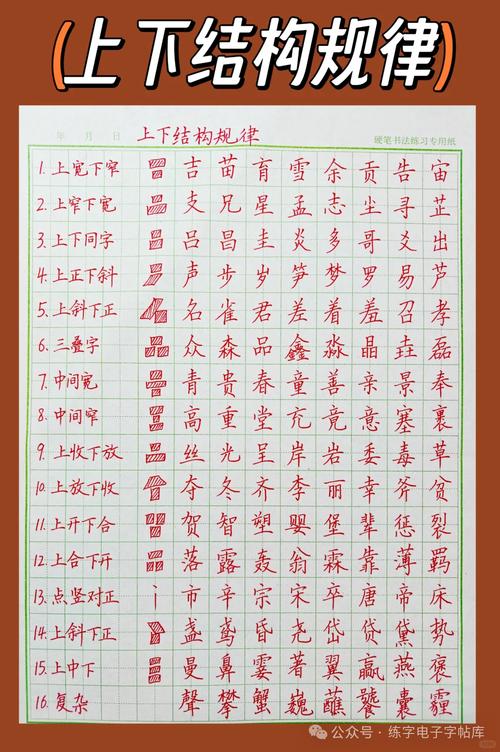 (上下结构规律)
年 月 日 上下结构规律 硬笔书法练习专用纸
1. 上宽下窄 吉 苗 育 雪 余 贡 告 宙
2. 上窄下宽 支 兄 星 孟 志 尘 寻 芷
3. 上下同字 吕 昌 圭 炎 多 哥 爻 出
4. 上正下斜 声 步 岁 笋 梦 罗 易 芦
5. 上斜下正 名 雀 君 差 着 羞 召 孝
6. 三叠字 众 森 品 鑫 淼 晶 垚 磊
7. 中间宽 青 贵 春 童 善 亲 景 奉
8. 中间窄 高 重 堂 充 竟 意 塞 裹
9. 上收下放 丝 光 呈 岸 岩 委 毒 草
10. 上放下收 夺 冬 齐 李 丽 幸 斧 贫
11. 上开下合 贺 智 塑 婴 堡 辈 惩 裂
12. 上合下开 落 露 轰 翁 霖 靠 薄 羁
13. 点竖对正 市 辛 宗 宋 卒 唐 帝 床
14. 上斜下正 盏 鸢 昏 尧 岱 贷 黛 势
15. 上中下 曼 鼻 霎 著 翼 赢 燕 褒
16. 复杂 聲 攀 蟹 巍 蘸 饕 囊 霾
公众号 · 练字电子字帖库